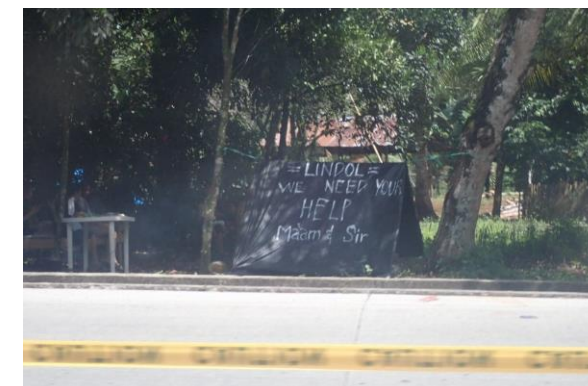 =LINDOL=
WE NEED YOUR
HELP
Maam & Sir